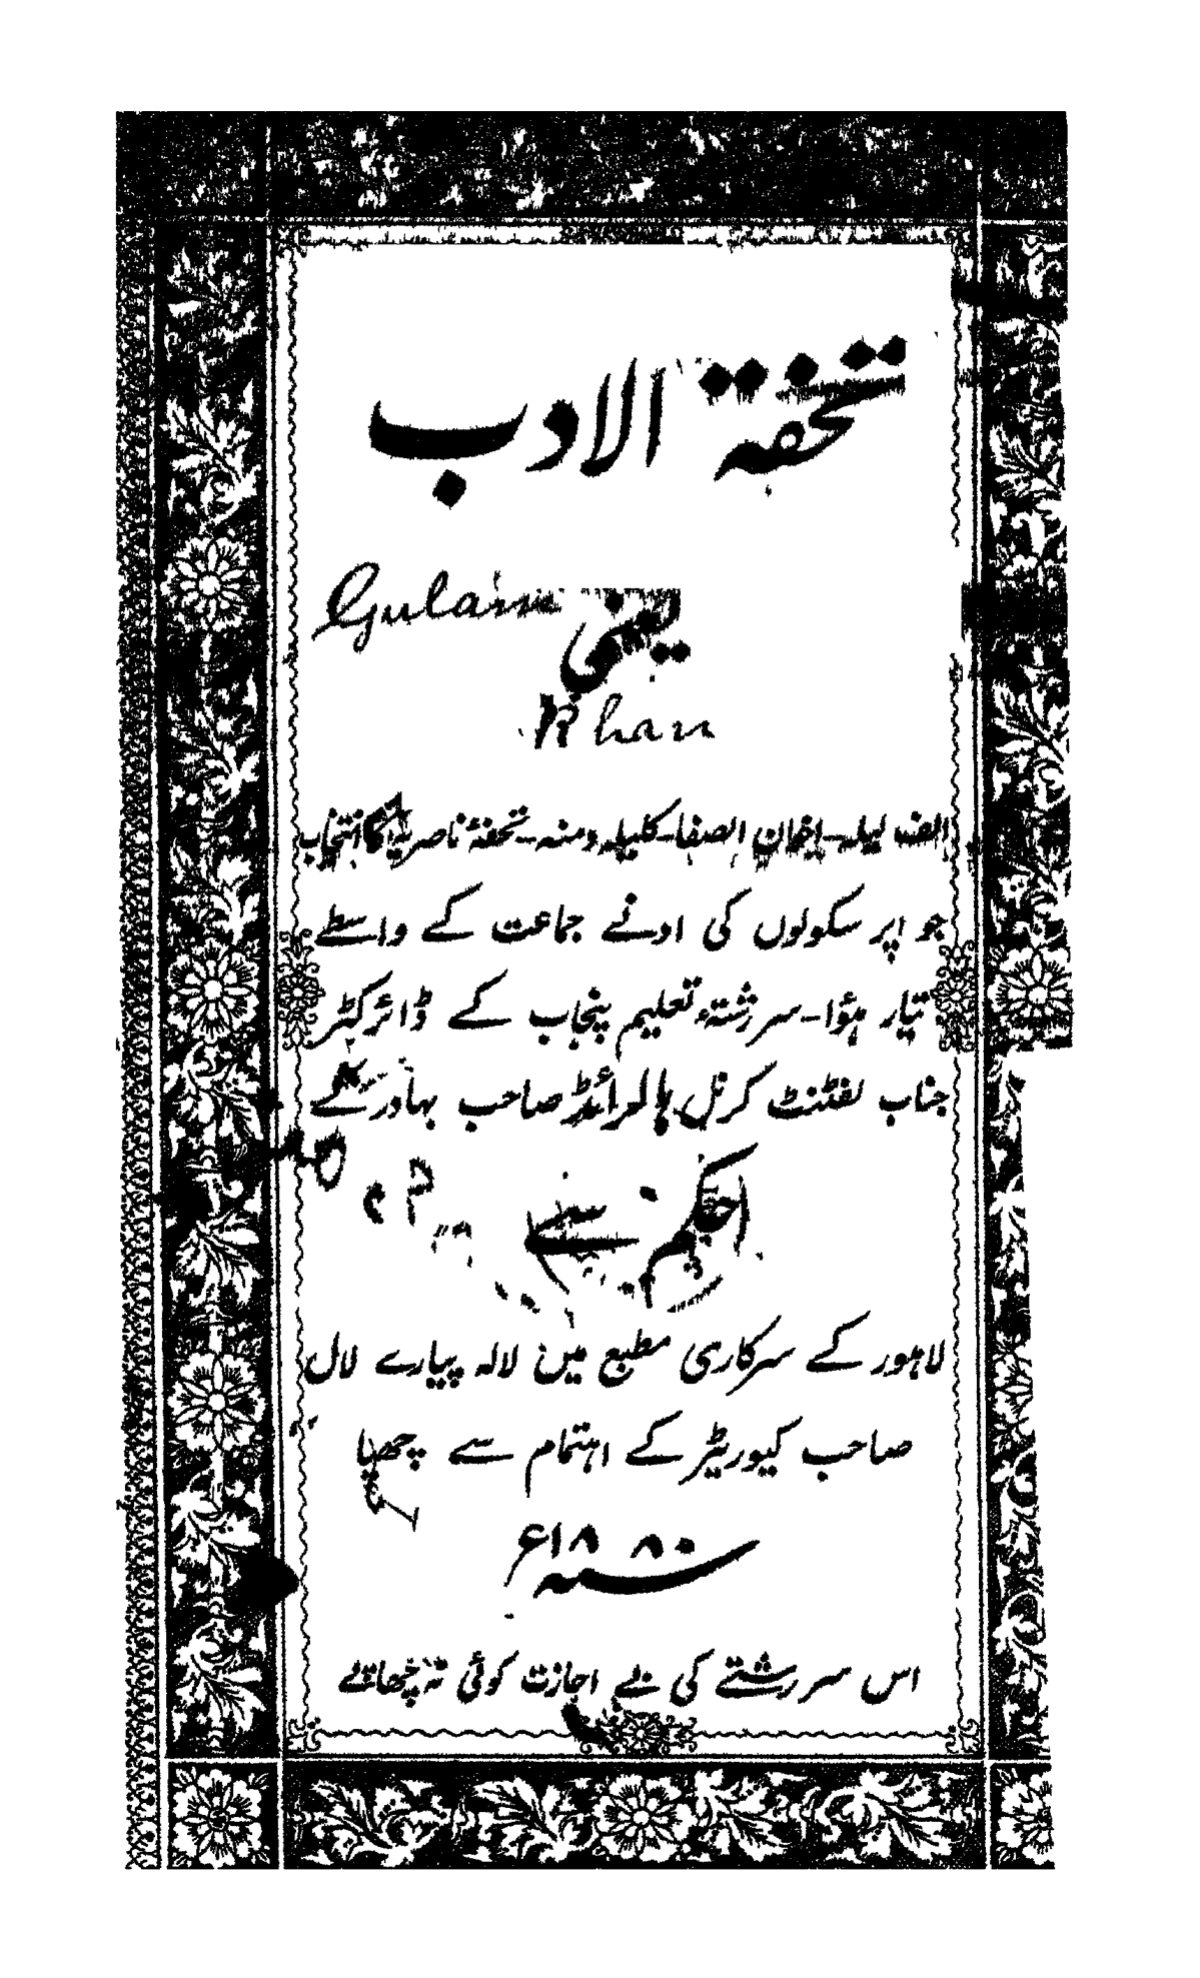 تحفۃ الادب
Gulam
یعنی
Khan
الف لیلہ - اخوان الصفا - کلیلہ دمنہ - تحفۂ ناصریہ کا انتخاب
جو اپر سکولوں کی ادنےٰ جماعت کے واسطے
تیار ہؤا - سررشتۂ تعلیم پنجاب کے ڈائرکٹر
جناب لفٹننٹ کرنل ہالرائڈ صاحب بہادر کے
حکم سے
لاہور کے سرکاری مطبع میں لالہ پیارے لال
صاحب کیوریٹر کے اہتمام سے چھپا
سنہ ۱۸۸۰ء
اس سررشتے کی بے اجازت کوئی نہ چھاپے